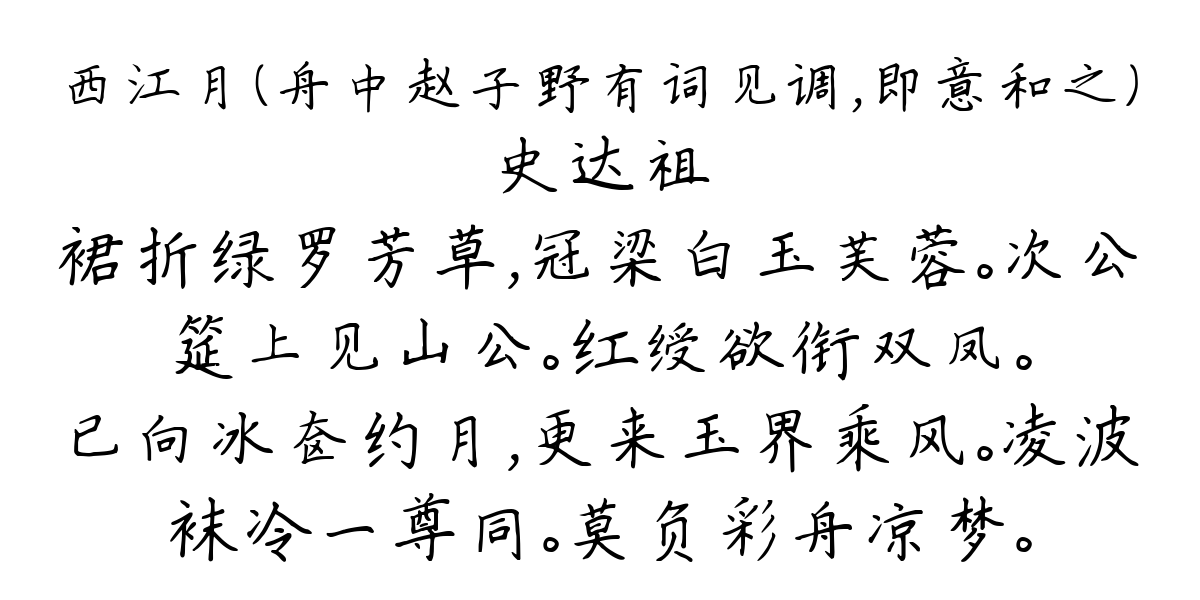 西江月(舟中赵子野有词见调,即意和之)
史达祖
裙折绿罗芳草,冠梁白玉芙蓉。次公
筵上见山公。红绶欲衔双凤。
已向冰奁约月,更来玉界乘风。凌波
袜冷一尊同。莫负彩舟凉梦。